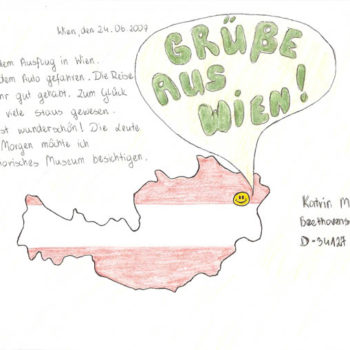 Wien, den 24.06.2009
dem Ausflug in Wien.
dem Auto gefahren. Die Reise
hr gut gehabt. Zum Glück
viele staus gewesen.
st wunderschön! Die Leute
Morgen möchte ich
orisches Museum besichtigen.
GRÜßE
AUS
WIEN!
Katrin M
Beethovens
D-34127